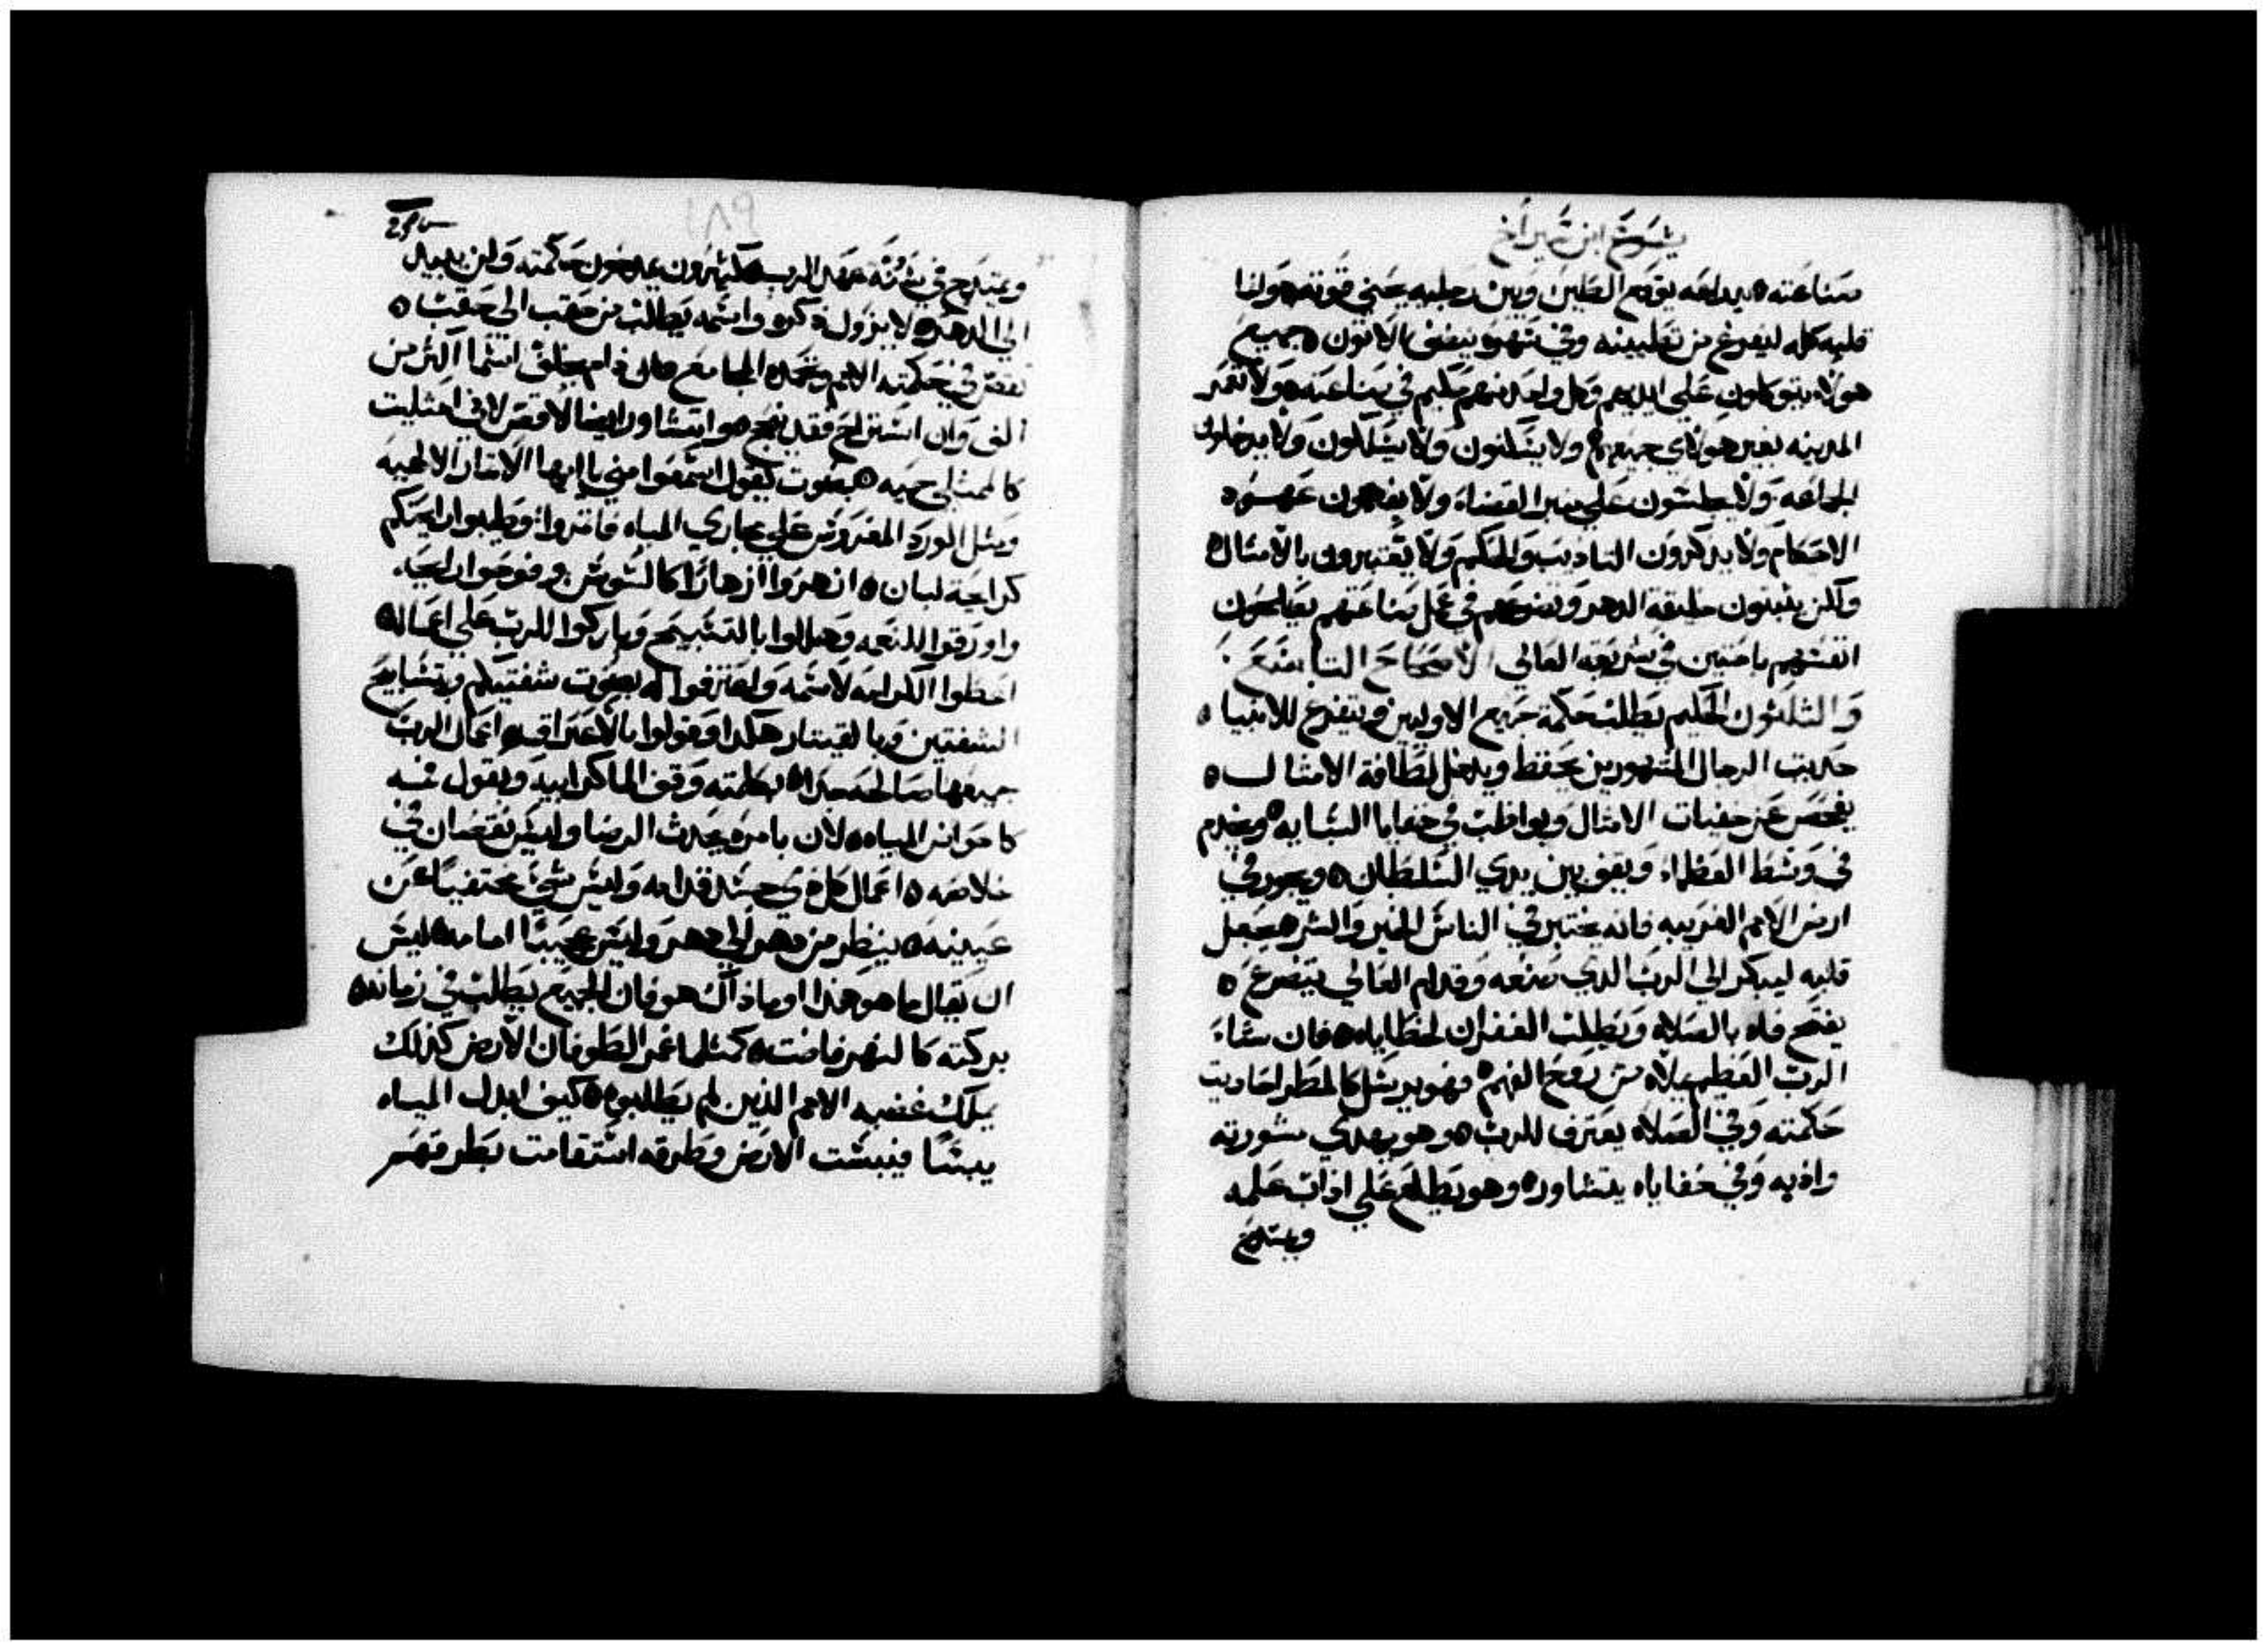 يشوع ابن شيراخ
صناعته ٥ بيداعه يقوم الطين وبين رجليه حني قوته ٥ ولنا
قلبه كله ليفرغ من تغليبينه وفي شهره ينقي الاتون ٥ جميع
هولاء يتوكلون علي ايديهم وكل واحد منهم حكيم في صناعته ٥ ولا تعمر
المدينه بغير هولاي جميعهم ولا يسكنون ولا يسلكون ولا يدخلون
الجماعه ولا يجلسون علي منبر القضاء ولا يفهمون عهود
الاحكام ولا يدكرون التاديب والحكم ولا يعتبرون بالامثال ٥
ولكن يثبتون خليقة الدهر وتضرعهم في عمل صناعتهم يصلحون
انفسهم باحثين في شريعة العالي الاصحاح التاسع
والثلثون الحكيم يطلب حكمة جميع الاولين ويتفرغ للانبيا ٥
حديت الرجال المشهورين يحفظ ويدخل لطافة الامثال ٥
يفحص عن خفيات الامثال ويواظب في خفايا التشابيه ٥ ويخدم
في وسط العظماء ويقف بين يدي السلطان ٥ ويجوز في
ارض الامم الغريبه فانه يختبر في الناس الخير والشر ٥ يجعل
قلبه ليبكر الي الرب الدي صنعه وقدام العالي يتضرع ٥
يفتح فاه بالصلاه ويطلب الغفران لخطاياه ٥ فان شاء
الرب العظيم يملاه من روح الفهم ٥ فهو يرسل كالمطر احاديت
حكمته وفي الصلاه يعترف للرب ٥ وهو يهدي مشورته
وادبه وفي خفاياه يتشاور ٥ وهو يطلع علي اداب علمه
ويمتدح
١٨٩
ويمتدح في سنة عهد الرب ٥ كثيرون يمدحون حكمته ولن يبيد
الي الدهر ٥ لا يزول ذكره واسمه يطلب من حقب الي حقب ٥
تقص في حكمته الامم وتحمده المجامع ٥ فان دام يخلف اسما اكثر من
الف وان استراح فقد ينجح ٥ هو اتشاور ايضا لاقص لاني امتليت
كالممتلي حميه ٥ بصوت يقول اسمعوا مني يا ايها الاثمار الالهيه
ومثل الورد المغروس علي مجاري المياه فاثمروا ٥ وطيبوا رايحتكم
كرايحة لبان ٥ انهروا ازهارا كالسوسن وفوحوا رايحه
واورقوا للنعمه وهللوا بالتسبيح وباركوا للرب علي اعماله ٥
اعطوا الكرامه لاسمه واعترفوا له بصوت شفتيكم وبتسابيح
الشفتين وبالقيتار هكدا وقولوا بالاعتراف ٥ اعمال الرب
جميعها صالحه جدا ٥ بكلمته وقف الماكرابيه وبقول فمه
كاحواض المياه ٥ لان بامره يحدث الرضا وليس نقصان في
خلاصه ٥ اعمال كل ذي جسد قدامه وليس شيء مختفيا عن
عينيه ٥ ينظر من دهر الي دهر وليس عجيبا امامه ٥ ليس
ان يقال ما هو هذا او ما ذاك هو فان الجميع يطلب في زمانه ٥
بركته كالنهر فاضت ٥ كمثلما غمر الطوفان الارض كذلك
يملك غضبه الامم الذين لم يطلبوه ٥ كيف ابدل المياه
يبسا فيبست الارض وطرقه استقامت بطرقهم